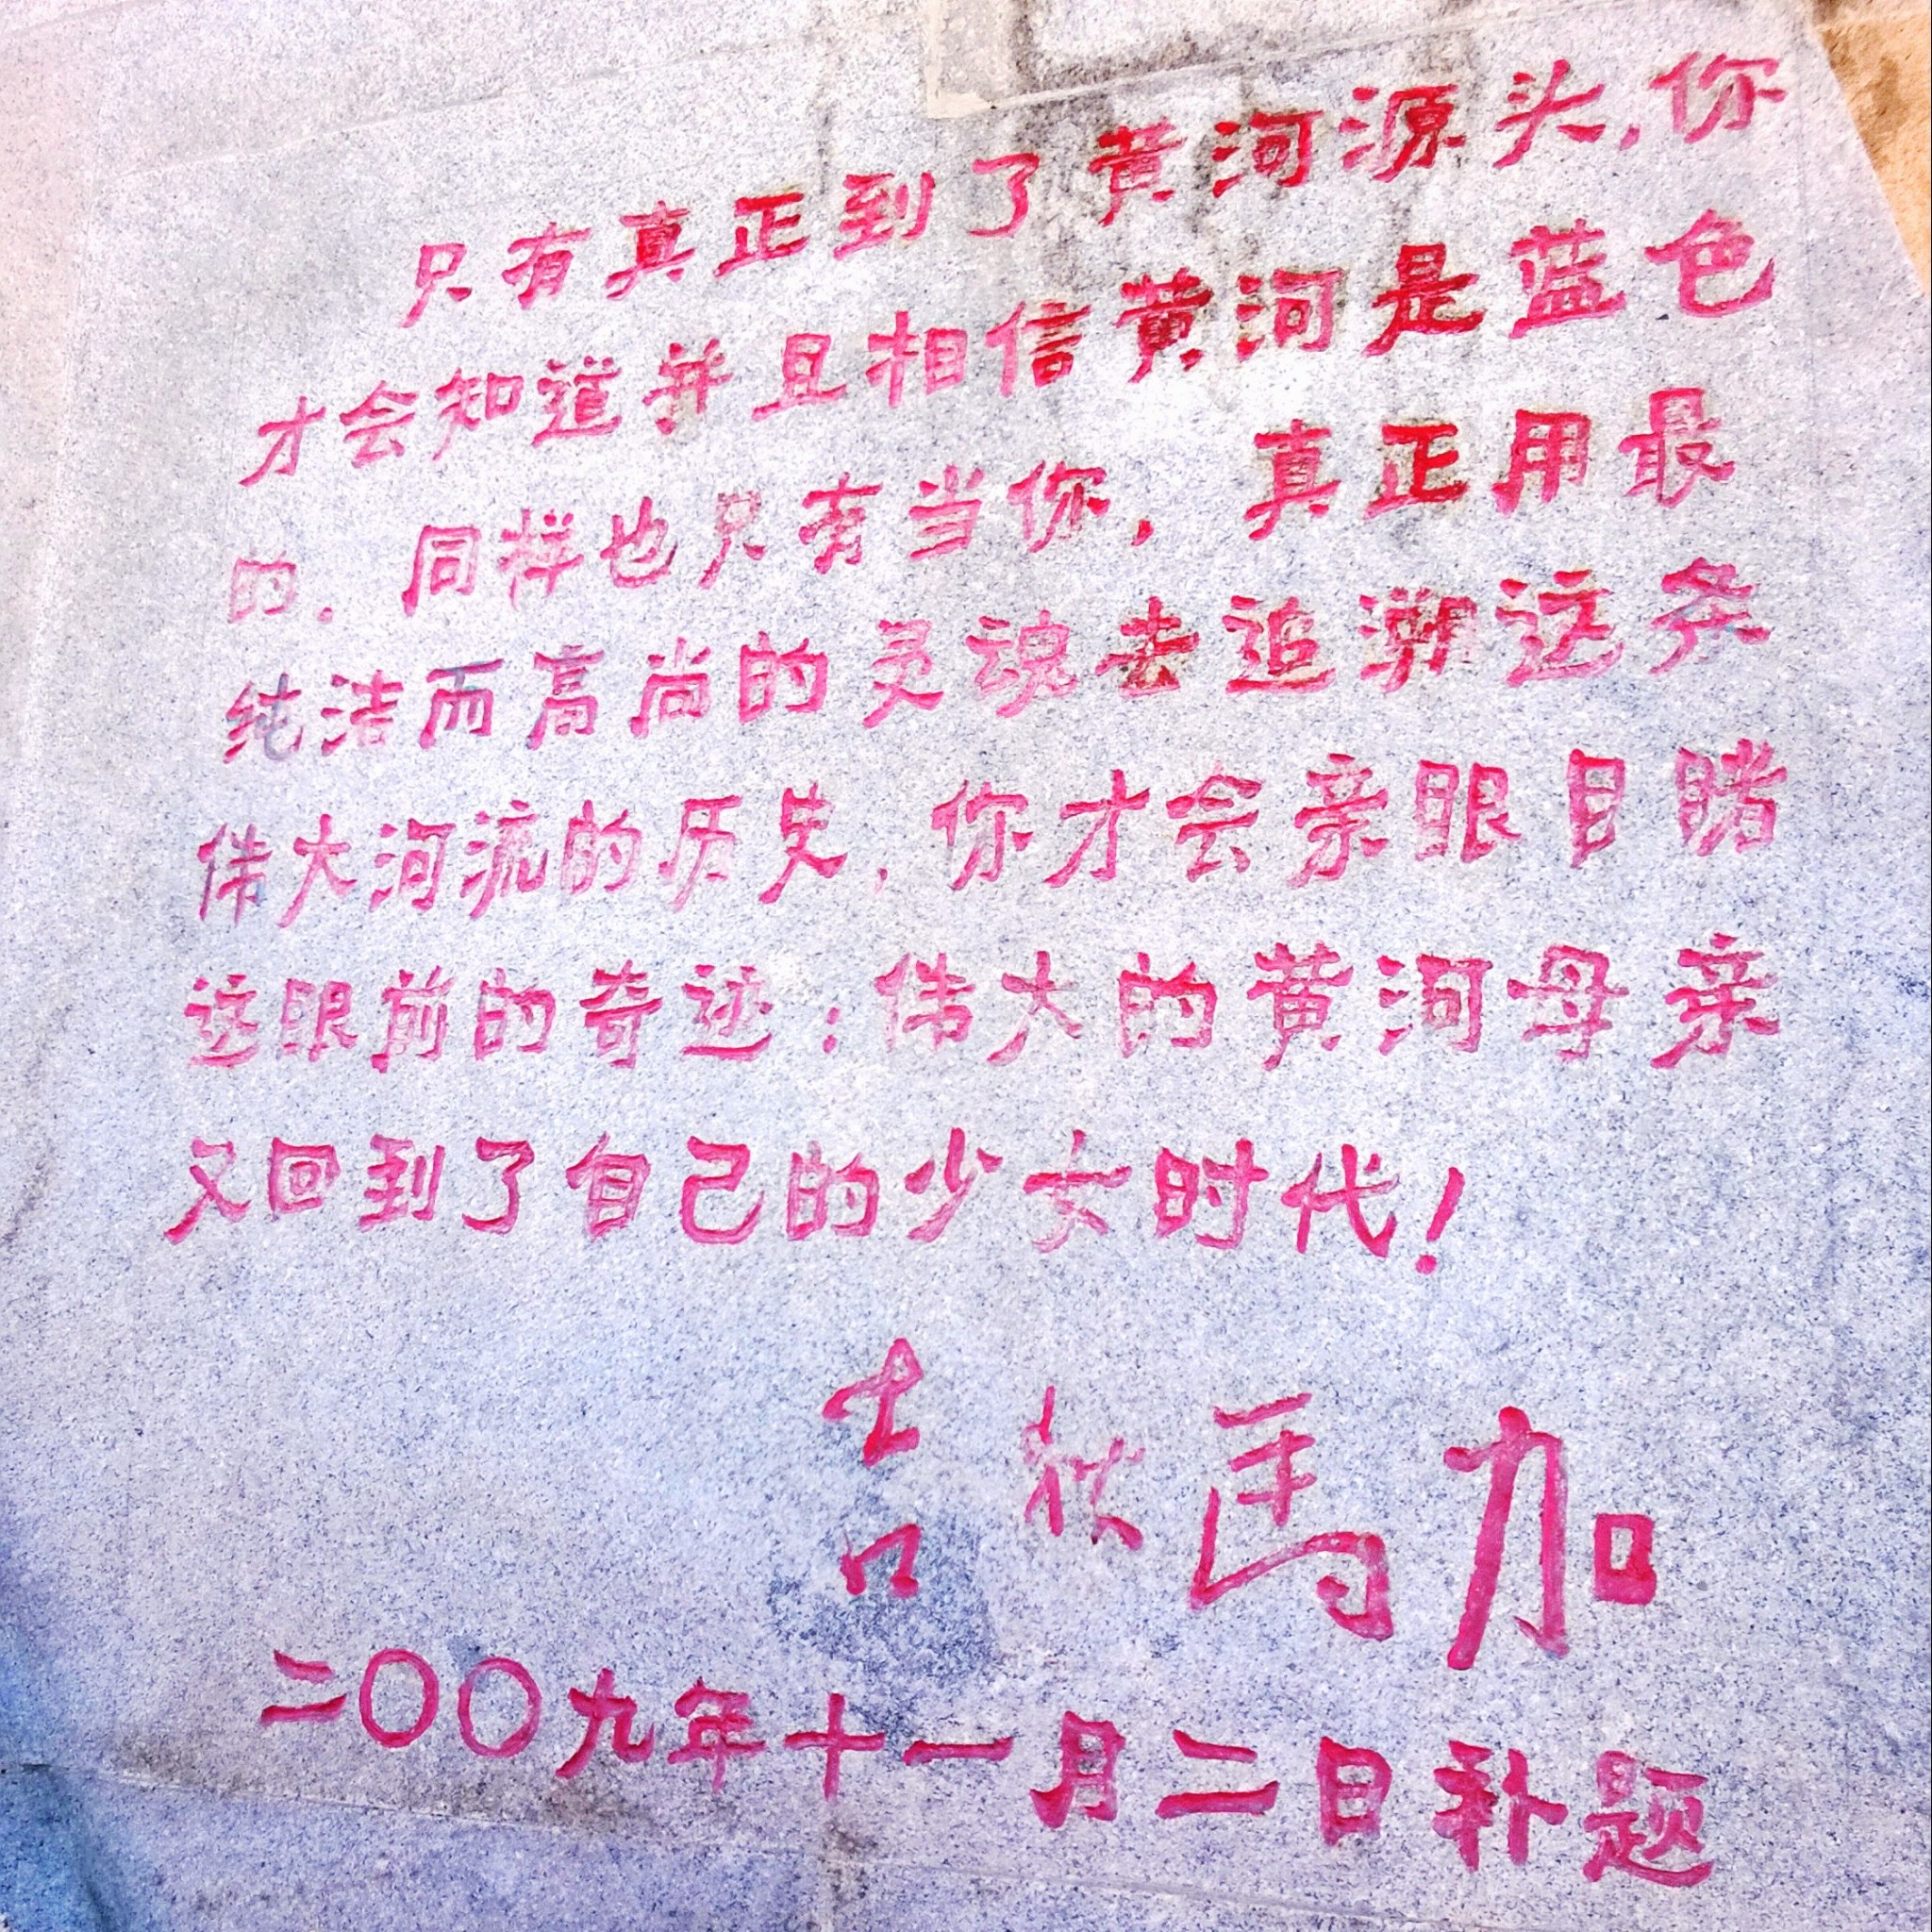 只有真正到了黄河源头，你
才会知道并且相信黄河是蓝色
的．同样也只有当你，真正用最
纯洁而高尚的灵魂去追溯这条
伟大河流的历史，你才会亲眼目睹
这眼前的奇迹：伟大的黄河母亲
又回到了自己的少女时代！
吉狄馬加
二〇〇九年十一月二日补题